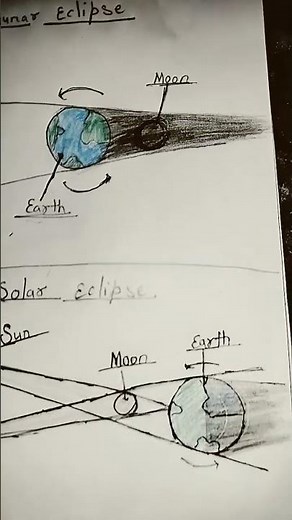 unar Eclipse
Moon
Earth
Solar Eclipse.
Sun
Earth
Moon